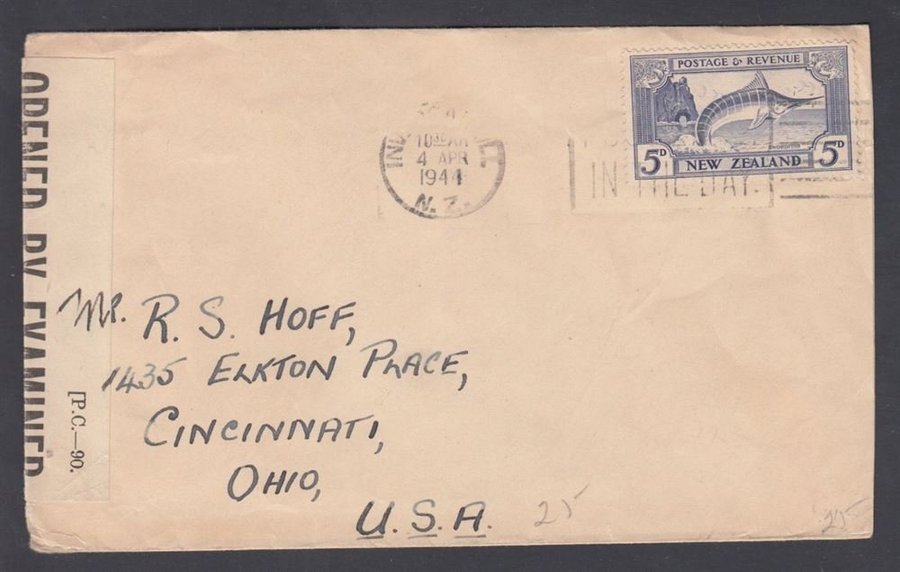 POSTAGE & REVENUE
5D NEW ZEALAND 5D
4 APR
1944
N.Z.
IN THE DAY.
OPENED BY EXAMINER
[P.C.—90.
Mr. R. S. HOFF,
1435 ELKTON PLACE,
CINCINNATI,
OHIO,
U.S.A.
25
25